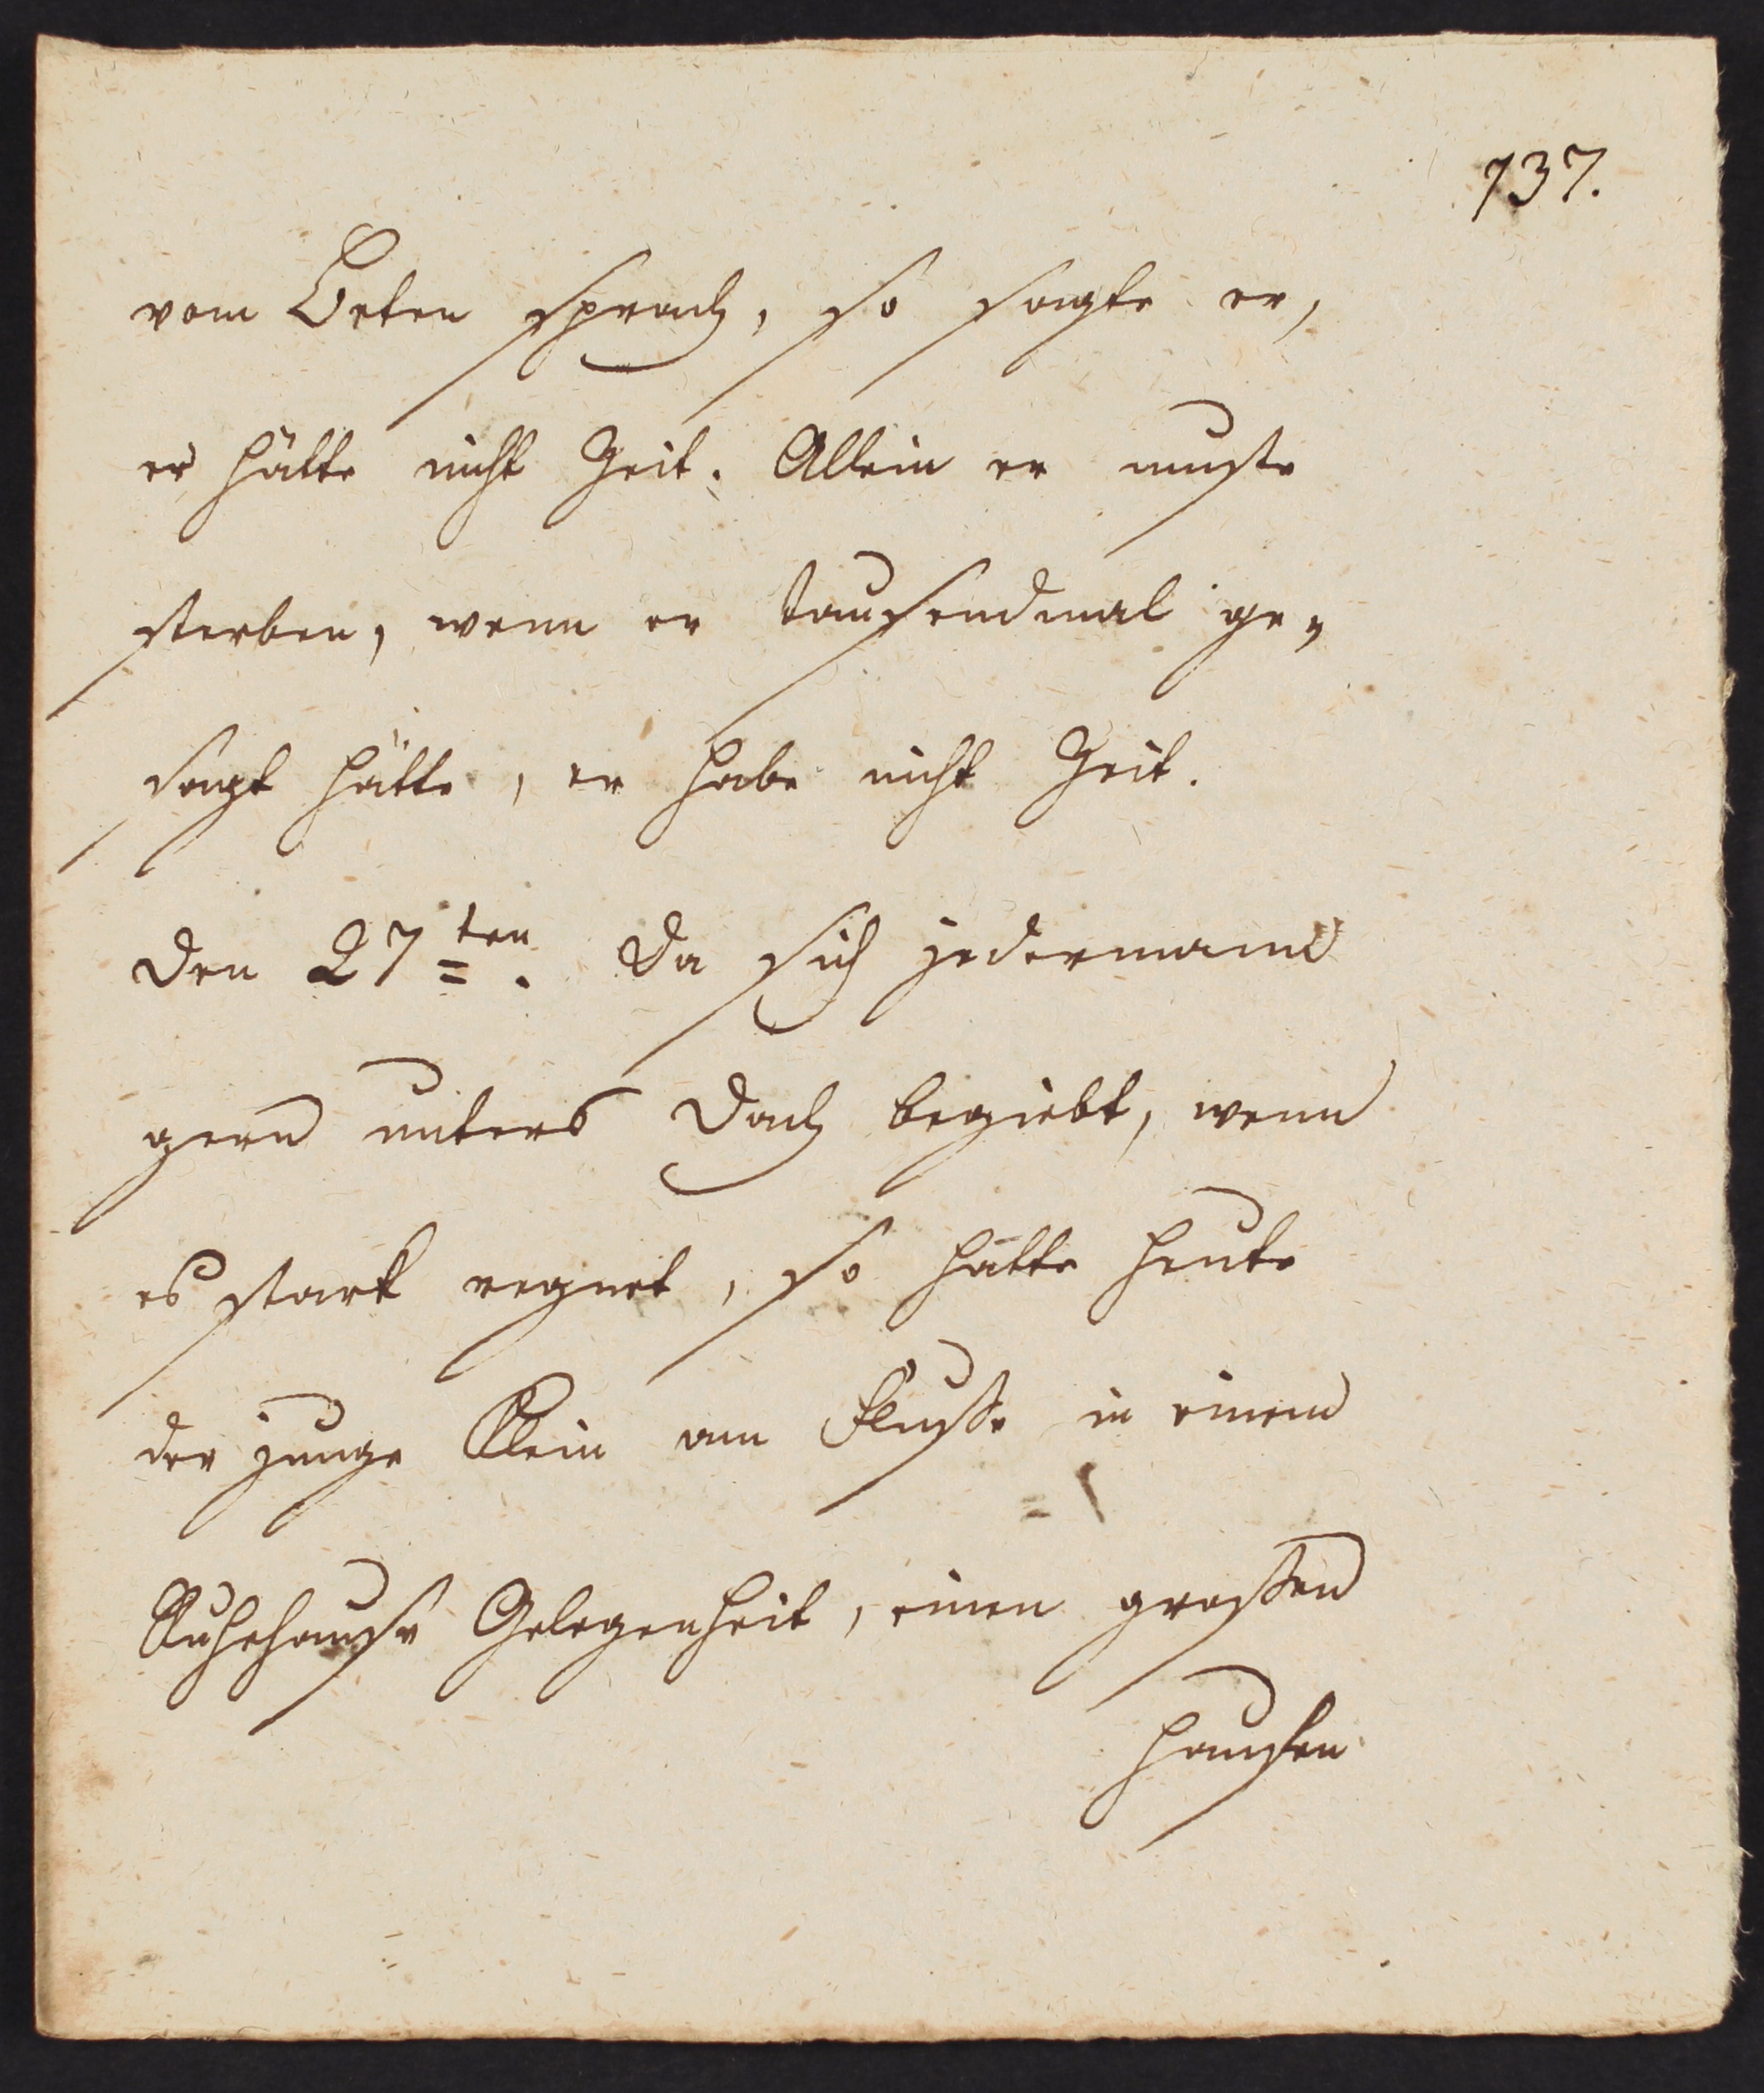 737.
vom Beten sprach, so sagte er,
er hätte nicht Zeit. Allein er muste
sterben, wenn er tausendmal ge-
sagt hätte, er habe nicht Zeit.
den 27ten. Da sich jedermann
gern unters Dach begiebt, wenn
es stark regnet, so hatte heute
der junge Klein am Flusse in einem
Kuhehause Gelegenheit, einen grossen
Haufen